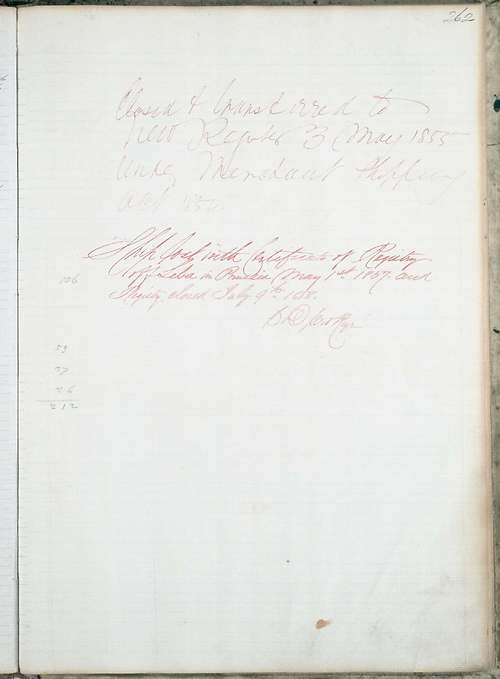 262
Closed & transferred to
New Register 3 May 1855
Under Merchant Shipping
act
Ship lost with Certificate of Registry
off in May 1st 1857 and
Registry closed July 9th
106
59
212